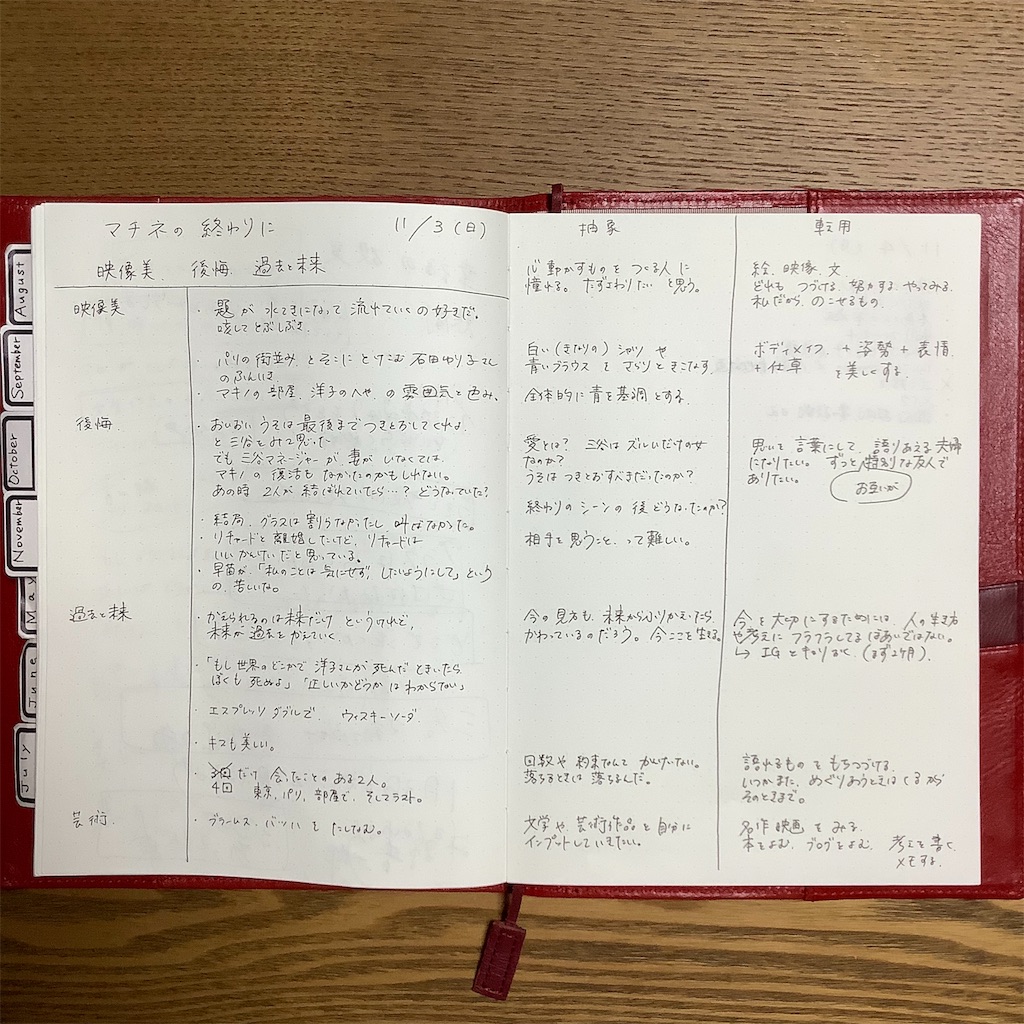 マチネの 終わりに 11/3(日)
映像美、後悔、過去と未来
映像美
・題が 水てきになって 流れていくの好きだ。
・パリの街並み、とそこに とけこむ 石田ゆり子さん
のふんいき
・マキノの部屋、洋子のへや、の 雰囲気と色み、
後悔
・おいおい うそは最後まで つきとおしてくれよ
と三谷をみて思った
でも三谷マネージャーが、妻が いなくては、
マキノの復活も なかったのかもしれない。
あの時 2人が 結ばれていたら…? どうなっていた?
・結局、グラスは割らなかったし 叫ばなかった。
・リチャードと離婚したけど、リチャードは
いいかんけいだと思っている。
・早苗が、「私のことは 気にせず、したいようにして」という
の、苦しいな。
過去と未来
・かえられるのは未来だけ というけれど、
未来が 過去を かえていく、
・「もし世界のどこかで 洋子さんが 死んだときいたら
ぼくも 死ぬよ」「正しいかどうかは わからない」
・エスプレッソ ダブルで、 ウィスキーソーダ
・キスも美しい。
・3回だけ 会ったことの ある2人。
4回 東京、パリ、部屋で、そしてラスト。
芸術、
・ブラームス、バッハを たしなむ。
抽象
心動かすものを つくる人に
憧れる。たずさわりたい と思う。
白い(きなりの)シャツや
青いブラウスを さらりと きこなす。
全体的に 青を基調とする。
愛とは? 三谷は ズルいだけの女
なのか?
うそは つきとおすべきだったのか?
終わりのシーンの 後どうなったのか?
相手を 思うこと、って 難しい。
今の見方も、未来からふりかえったら
かわっているのだろう。今ここを 生きる。
回数や 約束なんて かんけいない。
落ちるときは 落ちるんだ。
文学や、芸術作品を 自分に
インプットしていきたい。
転用
絵、映像、文、
どれも つづける、努力する、やってみる。
私だから、のこせるもの。
ボディメイク、+ 姿勢 + 表情、
+ 仕草 を美しくする。
思いを 言葉にして、語りあえる 夫婦
になりたい。ずっと 特別な友人で
ありたい。 お互いが
今を 大切にするためには、人の生き方
や考えに フラフラしてる ばあいではない。
↳ IGと きょりおく、(まず2ヶ月)。
語れるものを もちつづける、
いつかまた、めぐりあうときは くるから
そのときまで。
名作映画を みる、
本をよむ、ブログをよむ、 考えを 書く、
メモする。
August
September
October
November
May
June
July